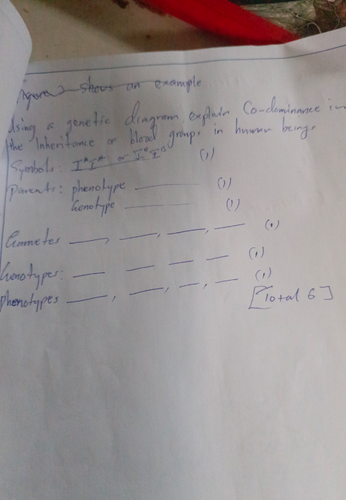 Figure 2 shows an example
Using a genetic diagram, explain Co-dominance in
the inheritance on blood groups in human beings
Symbols: (1)
Parents: phenotype ______ (1)
Genotype ______ (1)
Gametes __, __, __, __ (1)
Genotypes: __ __ __ __ (1)
phenotypes __, __, __, __ (1)
[Total 6]